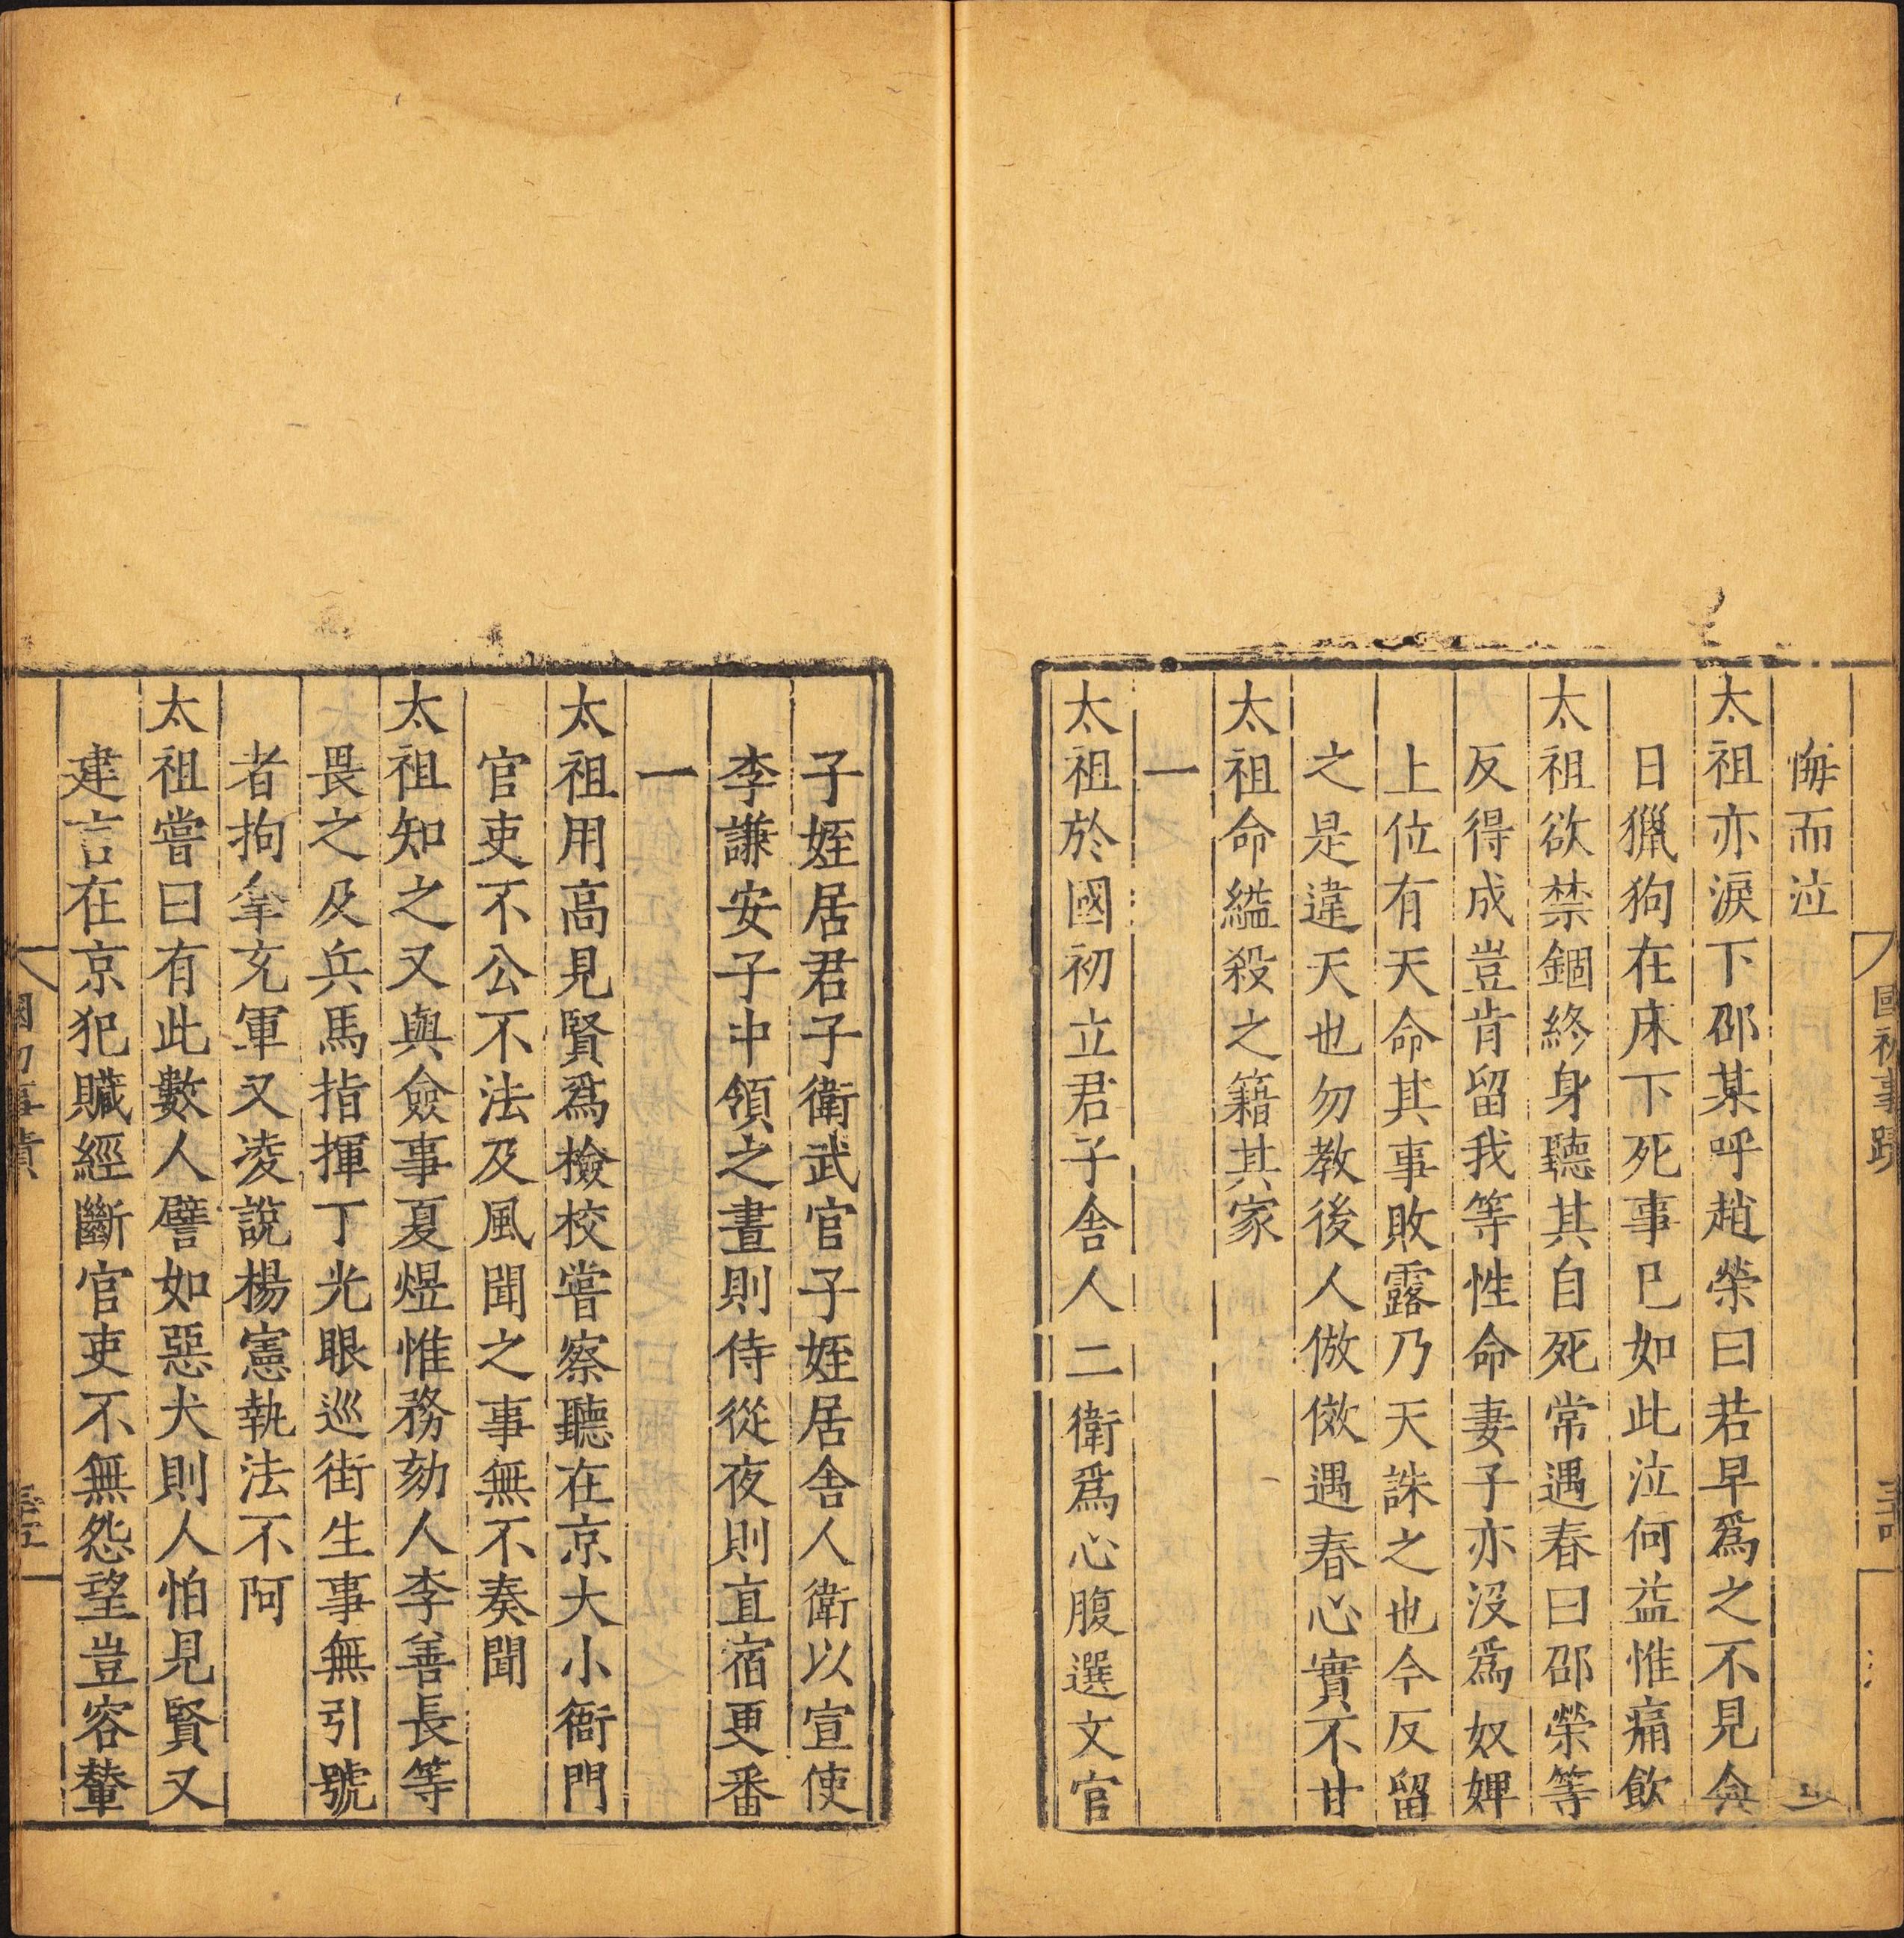 國初事蹟
悔而泣
太祖亦淚下邵某呼趙榮曰若早爲之不見今
日獵狗在床下死事已如此泣何益惟痛飲
太祖欲禁錮終身聽其自死常遇春曰邵榮等
反得成豈肯留我等性命妻子亦沒爲奴婢
上位有天命其事敗露乃天誅之也今反留
之是違天也勿教後人倣傚遇春心實不甘
太祖命縊殺之籍其家
一
太祖於國初立君子舍人二衛爲心腹選文官
子姪居君子衛武官子姪居舍人衛以宣使
李謙安子中領之晝則侍從夜則直宿更番
一
太祖用高見賢爲檢校嘗察聽在京大小衙門
官吏不公不法及風聞之事無不奏聞
太祖知之又與僉事夏煜惟務劾人李善長等
畏之及兵馬指揮丁光眼巡街生事無引號
者拘拿充軍又凌說楊憲執法不阿
太祖嘗曰有此數人譬如惡犬則人怕見賢又
建言在京犯贓經斷官吏不無怨望豈容輦
國初事蹟